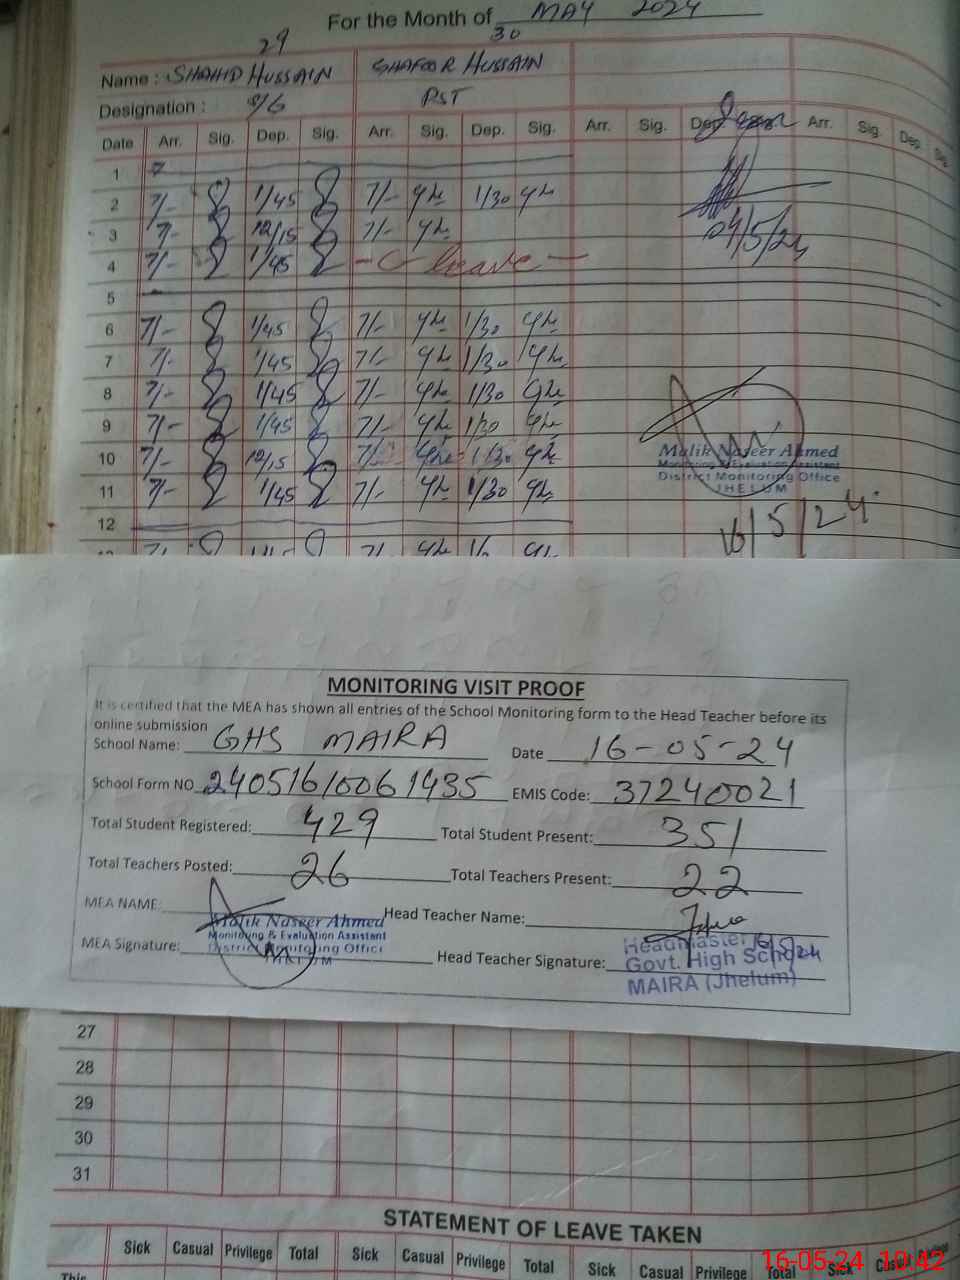 For the Month of MAY 2024
29 30
Name : SHAHID HUSSAIN GHAFOOR HUSSAIN
Designation : S/G PST
Date Arr. Sig. Dep. Sig. Arr. Sig. Dep. Sig. Arr. Sig. Dep. Arr. Sig. Dep. Sig.
1
2 7/- 1/45 7/- 1/30
3 7/- 12/15 7/-
4 7/- 1/45 leave
04/5/24
5
6 7/- 1/45 7/- 1/30
7 7/- 1/45 7/- 1/30
8 7/- 1/45 7/- 1/30
9 7/- 1/45 7/- 1/30
10 7/- 12/15 7/- 1/30
11 7/- 1/45 7/- 1/30
12
Malik Naseer Ahmed
Monitoring & Evaluation Assistant
District Monitoring Office
JHELUM
16/5/24
MONITORING VISIT PROOF
It is certified that the MEA has shown all entries of the School Monitoring form to the Head Teacher before its
online submission
School Name: GHS MAIRA Date 16-05-24
School Form NO 24051610061435 EMIS Code: 37240021
Total Student Registered: 429 Total Student Present: 351
Total Teachers Posted: 26 Total Teachers Present: 22
MEA NAME: Head Teacher Name:
Malik Naseer Ahmed
Monitoring & Evaluation Assistant
District Monitoring Office
JHELUM
MEA Signature: Head Teacher Signature:
Headmaster 16/5/24
Govt. High School
MAIRA (Jhelum)
27
28
29
30
31
STATEMENT OF LEAVE TAKEN
Sick Casual Privilege Total Sick Casual Privilege Total Sick Casual Privilege Total Sick Casual Privilege
This
16-05-24 10:42